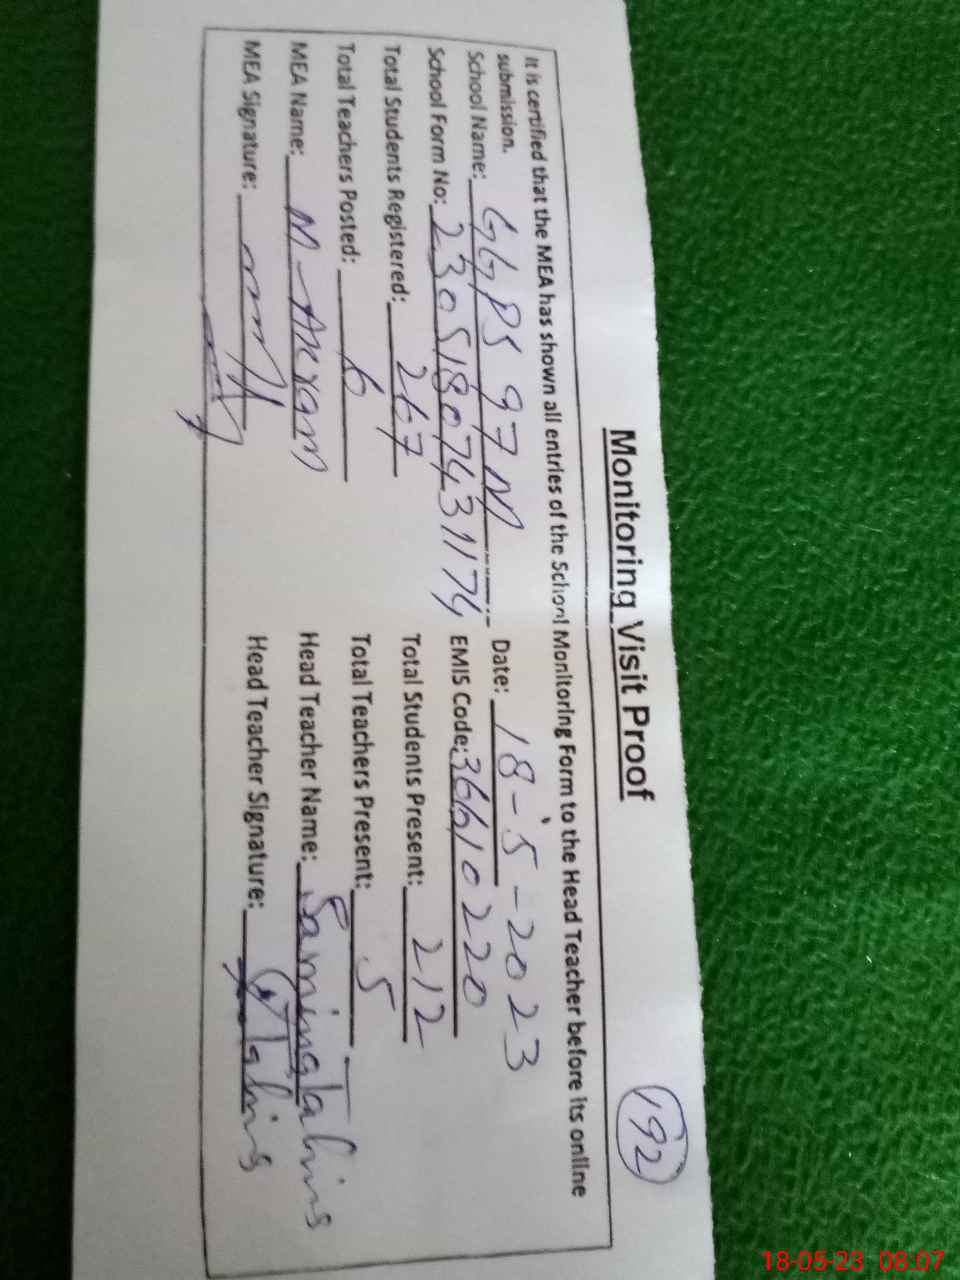 Monitoring Visit Proof
192
It is certified that the MEA has shown all entries of the School Monitoring Form to the Head Teacher before its online
submission.
School Name: GGPS 97 M Date: 18-5-2023
School Form No: 23051807431174 EMIS Code: 36610220
Total Students Registered: 267 Total Students Present: 212
Total Teachers Posted: 6 Total Teachers Present: 5
MEA Name: M-Akram Head Teacher Name:
MEA Signature: Head Teacher Signature:
18-05-23 08:07